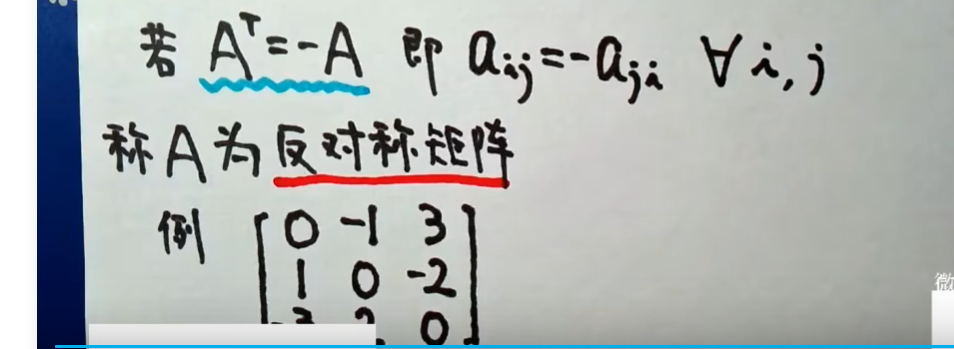 若 Aᵀ=-A 即 aᵢⱼ=-aⱼᵢ ∀ i, j
称A为反对称矩阵
例 0 -1 3
1 0 -2
0